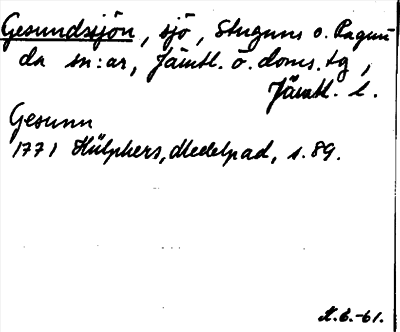 Gesundsjön, sjö, Stuguns o. Ragun
da sn:ar, Jämtl. ö. doms. tg,
Jämtl. l.
Gesunn
1771 Hülphers, Medelpad, s. 89.
K.E.-61.